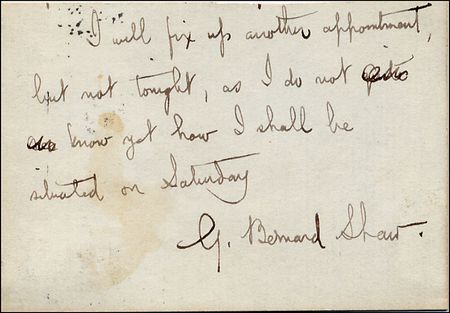 I will fix up another appointment,
but not tonight, as I do not
know yet how I shall be
situated on Saturday
G. Bernard Shaw.